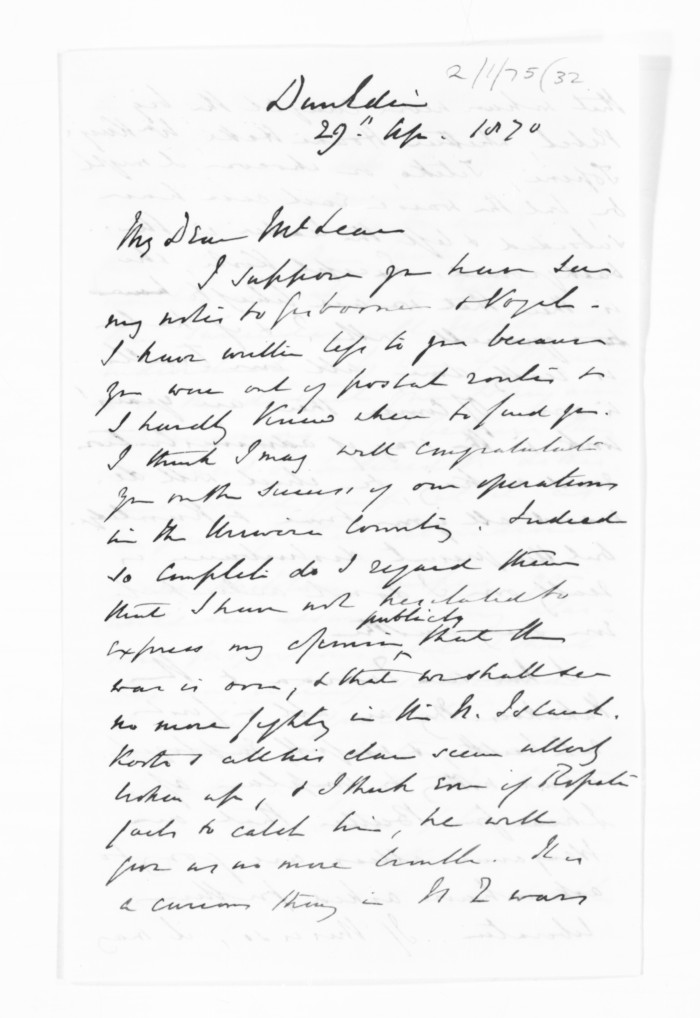 2/1/75(32
Dunedin
29th Ap. 1870
My Dear McLean
I suppose you have seen
my notes to Gisborne & Vogel.
I have written less to you because
you were out of postal routes &
I hardly knew where to find you.
I think I may well congratulate
you on the success of our operations
in the Urewera Country. Indeed
so complete do I regard them
that I have not hesitated to
publicly
express my opinion that the
war is over, & that we shall see
no more fighting in the N. Island.
Kooti & all his clan seem utterly
broken up, & I think even if Ropata
fails to catch him, he will
give us no more trouble. It is
a curious thing in N Z wars